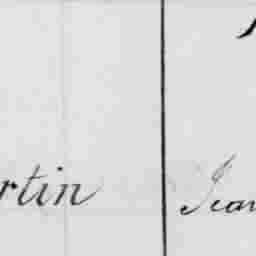 rtin Jean